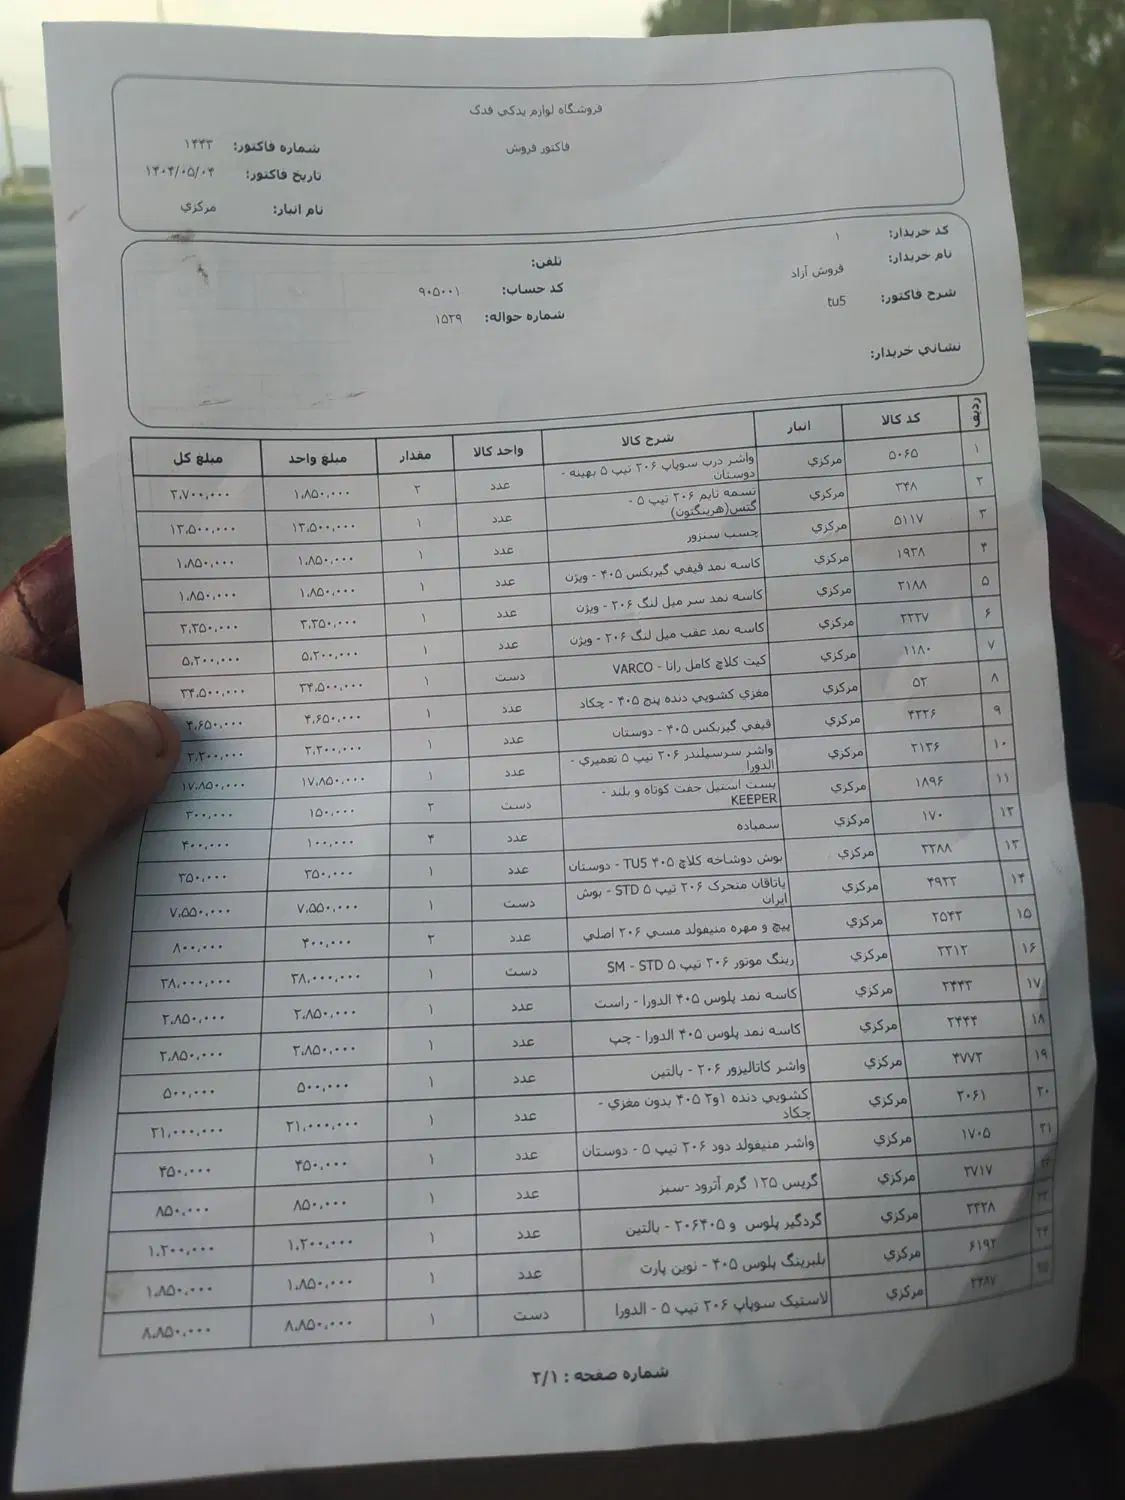 فروشگاه لوازم يدكي فدک
فاکتور فروش
شماره فاکتور: ۱۴۴۳
تاریخ فاکتور: ۱۴۰۴/۰۵/۰۴
نام انبار: مرکزي
کد خریدار: ۱
نام خریدار: فروش آزاد
شرح فاکتور: tu5
نشاني خریدار:
تلفن:
کد حساب: ۹۰۵۰۰۱
شماره حواله: ۱۵۲۹
ردیف کد کالا انبار شرح کالا واحد کالا مقدار مبلغ واحد مبلغ کل
۱ ۵۰۶۵ مرکزي واشر درب سوپاپ ۲۰۶ تیپ ۵ بهینه - دوستان عدد ۲ ۱،۸۵۰،۰۰۰ ۳،۷۰۰،۰۰۰
۲ ۳۴۸ مرکزي تسمه تایم ۲۰۶ تیپ ۵ - گتس(هرینگتون) عدد ۱ ۱۳،۵۰۰،۰۰۰ ۱۳،۵۰۰،۰۰۰
۳ ۵۱۱۷ مرکزي چسب سنزور عدد ۱ ۱،۸۵۰،۰۰۰ ۱،۸۵۰،۰۰۰
۴ ۱۹۳۸ مرکزي کاسه نمد قیفي گیربکس ۴۰۵ - ویژن عدد ۱ ۱،۸۵۰،۰۰۰ ۱،۸۵۰،۰۰۰
۵ ۲۱۸۸ مرکزي کاسه نمد سر میل لنگ ۲۰۶ - ویژن عدد ۱ ۲،۳۵۰،۰۰۰ ۲،۳۵۰،۰۰۰
۶ ۲۲۲۷ مرکزي کاسه نمد عقب میل لنگ ۲۰۶ - ویژن عدد ۱ ۵،۲۰۰،۰۰۰ ۵،۲۰۰،۰۰۰
۷ ۱۱۸۰ مرکزي کیت کلاچ کامل رانا - VARCO دست ۱ ۳۴،۵۰۰،۰۰۰ ۳۴،۵۰۰،۰۰۰
۸ ۵۲ مرکزي مغزي کشویي دنده پنج ۴۰۵ - چکاد عدد ۱ ۴،۶۵۰،۰۰۰ ۴،۶۵۰،۰۰۰
۹ ۴۲۲۶ مرکزي قیفي گیربکس ۴۰۵ - دوستان عدد ۱ ۲،۲۰۰،۰۰۰ ۲،۲۰۰،۰۰۰
۱۰ ۲۱۳۶ مرکزي واشر سرسیلندر ۲۰۶ تیپ ۵ تعمیري - الدورا عدد ۱ ۱۷،۸۵۰،۰۰۰ ۱۷،۸۵۰،۰۰۰
۱۱ ۱۸۹۶ مرکزي بست استیل جفت کوتاه و بلند - KEEPER دست ۲ ۱۵۰،۰۰۰ ۳۰۰،۰۰۰
۱۲ ۱۷۰ مرکزي سمباده عدد ۴ ۱۰۰،۰۰۰ ۴۰۰،۰۰۰
۱۳ ۳۲۸۸ مرکزي بوش دوشاخه کلاچ ۴۰۵ TU5 - دوستان عدد ۱ ۳۵۰،۰۰۰ ۳۵۰،۰۰۰
۱۴ ۴۹۳۳ مرکزي یاتاقان متحرک ۲۰۶ تیپ ۵ STD - بوش ایران دست ۱ ۷،۵۵۰،۰۰۰ ۷،۵۵۰،۰۰۰
۱۵ ۲۵۴۳ مرکزي پیچ و مهره منیفولد مسي ۲۰۶ اصلي عدد ۲ ۴۰۰،۰۰۰ ۸۰۰،۰۰۰
۱۶ ۳۳۱۲ مرکزي رینگ موتور ۲۰۶ تیپ ۵ SM - STD دست ۱ ۳۸،۰۰۰،۰۰۰ ۳۸،۰۰۰،۰۰۰
۱۷ ۲۴۴۳ مرکزي کاسه نمد پلوس ۴۰۵ الدورا - راست عدد ۱ ۲،۸۵۰،۰۰۰ ۲،۸۵۰،۰۰۰
۱۸ ۲۴۴۴ مرکزي کاسه نمد پلوس ۴۰۵ الدورا - چپ عدد ۱ ۲،۸۵۰،۰۰۰ ۲،۸۵۰،۰۰۰
۱۹ ۴۷۷۳ مرکزي واشر کاتالیزور ۲۰۶ - بالتین عدد ۱ ۵۰۰،۰۰۰ ۵۰۰،۰۰۰
۲۰ ۲۰۶۱ مرکزي کشویي دنده ۱و۲ ۴۰۵ بدون مغزي - چکاد عدد ۱ ۲۱،۰۰۰،۰۰۰ ۲۱،۰۰۰،۰۰۰
۲۱ ۱۷۰۵ مرکزي واشر منیفولد دود ۲۰۶ تیپ ۵ - دوستان عدد ۱ ۴۵۰،۰۰۰ ۴۵۰،۰۰۰
۲۲ ۲۷۱۷ مرکزي گریس ۱۲۵ گرم آترود -سبز عدد ۱ ۸۵۰،۰۰۰ ۸۵۰،۰۰۰
۲۳ ۲۴۲۸ مرکزي گردگیر پلوس و ۲۰۶۴۰۵ - بالتین عدد ۱ ۱،۲۰۰،۰۰۰ ۱،۲۰۰،۰۰۰
۲۴ ۶۱۹۲ مرکزي بلبرینگ پلوس ۴۰۵ - نوین پارت عدد ۱ ۱،۸۵۰،۰۰۰ ۱،۸۵۰،۰۰۰
۲۵ ۲۲۸۷ مرکزي لاستیک سوپاپ ۲۰۶ تیپ ۵ - الدورا دست ۱ ۸،۸۵۰،۰۰۰ ۸،۸۵۰،۰۰۰
شماره صفحه : ۲/۱